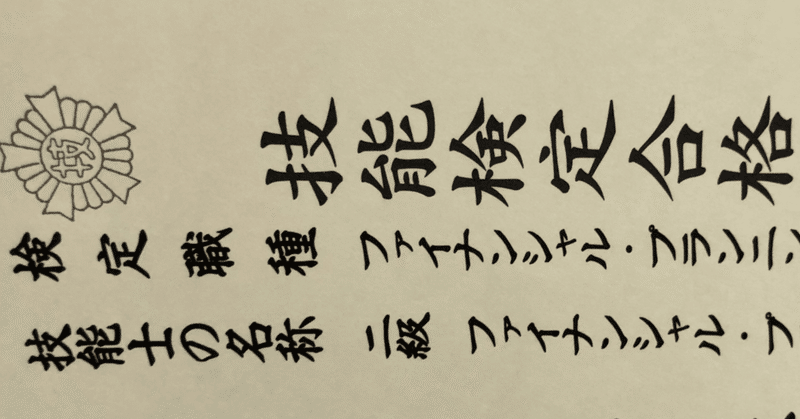 技能検定合格
検定職種 ファイナンシャル・プランニン
技能士の名称 二級 ファイナンシャル・プ